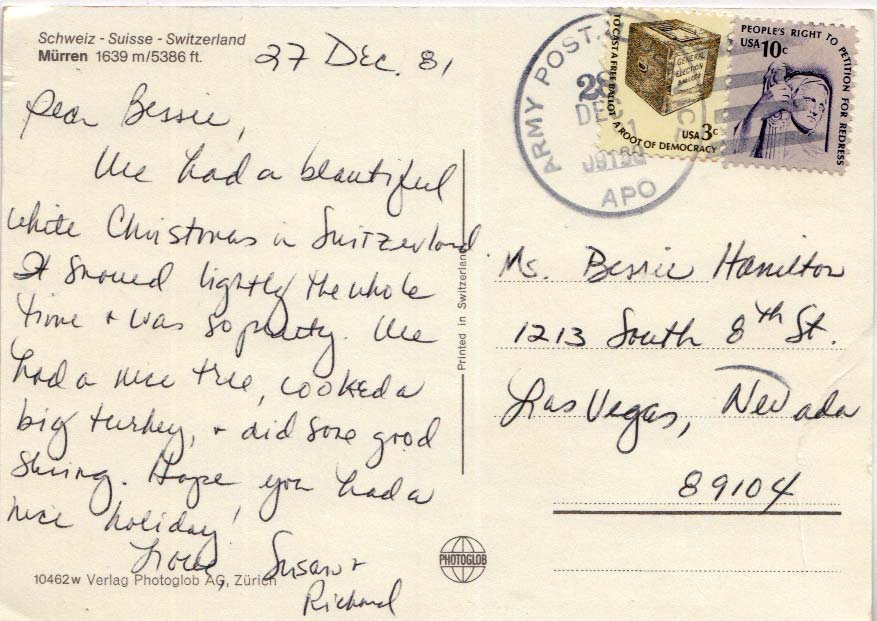 Schweiz - Suisse - Switzerland
Mürren 1639 m/5386 ft.
27 Dec. 81
Dear Bessie,
We had a beautiful
white Christmas in Switzerland
It snowed lightly the whole
time + was so pretty. We
had a nice tree, cooked a
big turkey, + did some good
skiing. Hope you had a
nice holiday!
Love, Susan +
Richard
10462w Verlag Photoglob AG, Zürich
Printed in Switzerland
PHOTOGLOB
ARMY POSTAL
DEC
APO
TO CAST A FREE BALLOT A ROOT OF DEMOCRACY
GENERAL
ELECTION
BALLOTS
USA 3c
PEOPLE'S RIGHT TO PETITION FOR REDRESS
USA 10c
Ms. Bessie Hamilton
1213 South 8th St.
Las Vegas, Nevada
89104